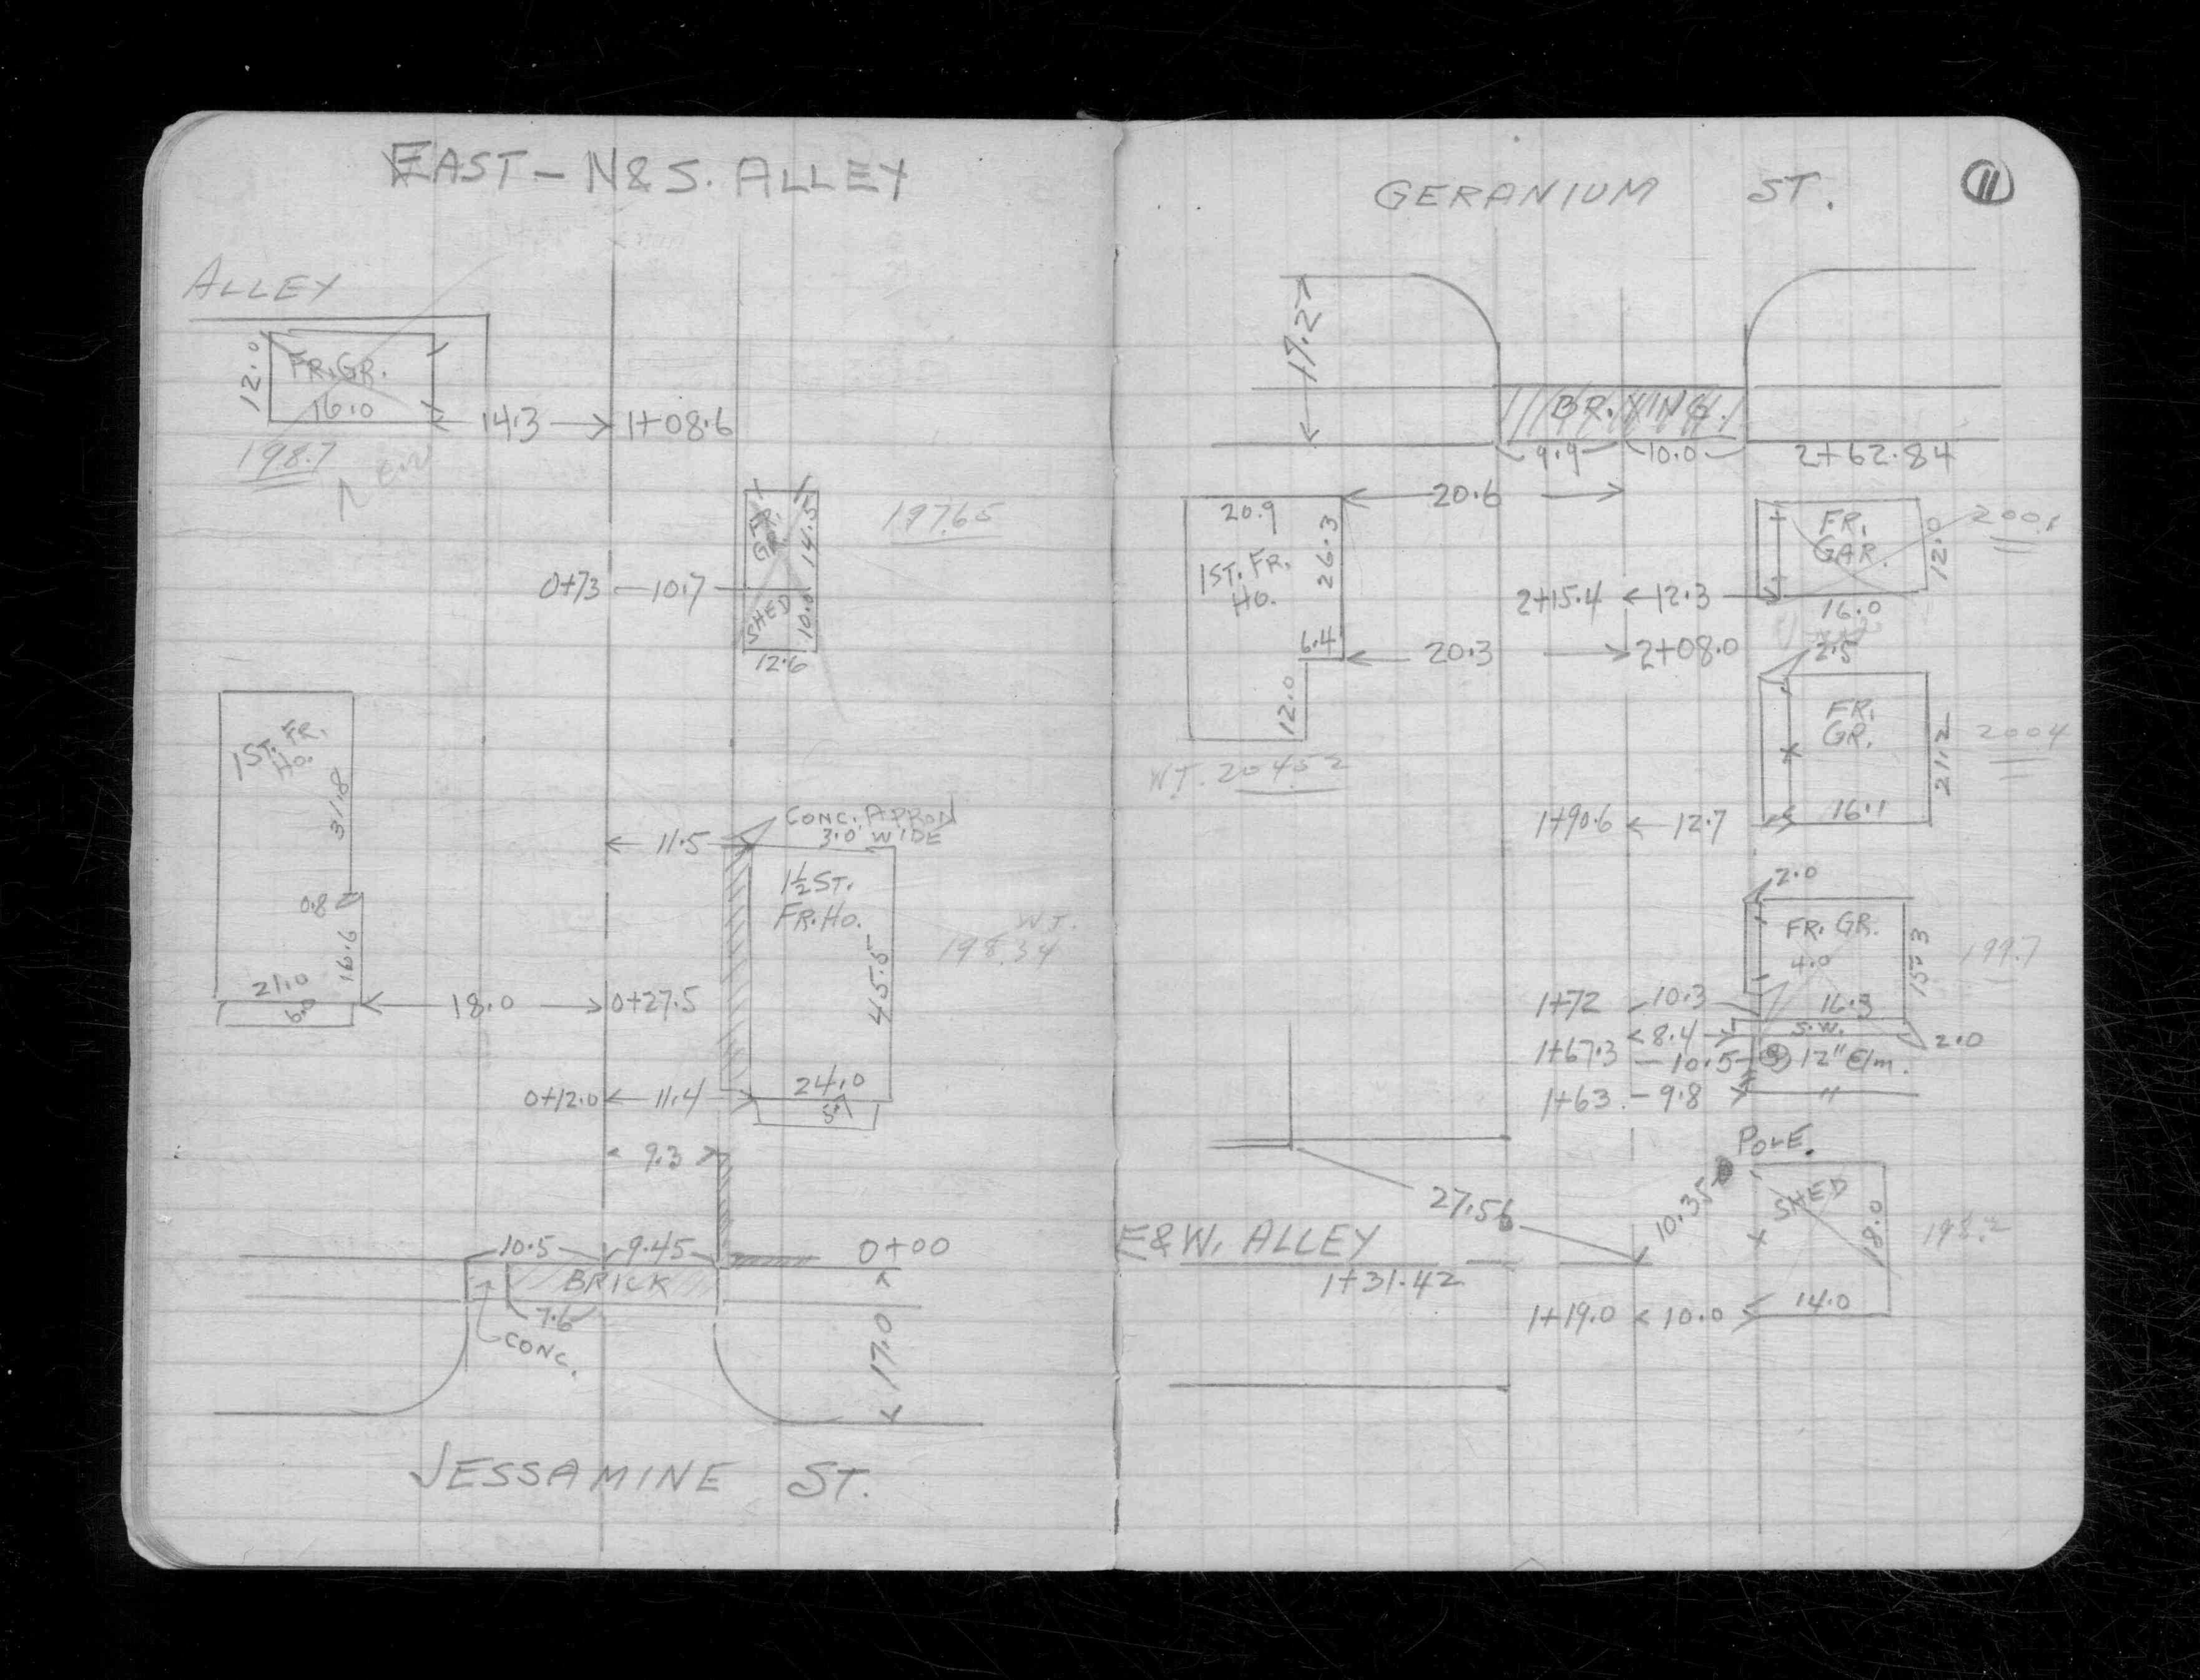 EAST - N&S. ALLEY
ALLEY
12.0
FR.GR.
16.0
14.3
1+08.6
198.7
New
GR.
14.5
197.65
0+73
10.7
SHED
10.0
12.6
1ST. FR.
HO.
31.8
0.8
16.6
21.0
6.0
18.0
0+27.5
CONC. APRON
3.0' WIDE
11.5
1½ ST.
FR. HO.
45.5
WT.
198.34
24.0
0+12.0
11.4
9.3
10.5
9.45
0+00
BRICK
7.6
CONC.
17.0
JESSAMINE ST.
GERANIUM ST.
11
17.2
BR. XING.
9.9
10.0
2+62.84
20.6
20.9
26.3
1ST. FR.
HO.
6.4
12.0
WT. 204.52
FR.
GAR.
12.0
200.1
2+15.4
12.3
16.0
20.3
2+08.0
2.5
FR.
GR.
21.2
200.4
1+90.6
12.7
16.1
2.0
FR. GR.
4.0
15.3
199.7
1+72
10.3
16.3
8.4
S.W.
2.0
1+67.3
10.5
12" Elm.
1+63
9.8
"
POLE.
27.56
10.35
SHED
18.0
198.2
E&W. ALLEY
1+31.42
1+19.0
10.0
14.0